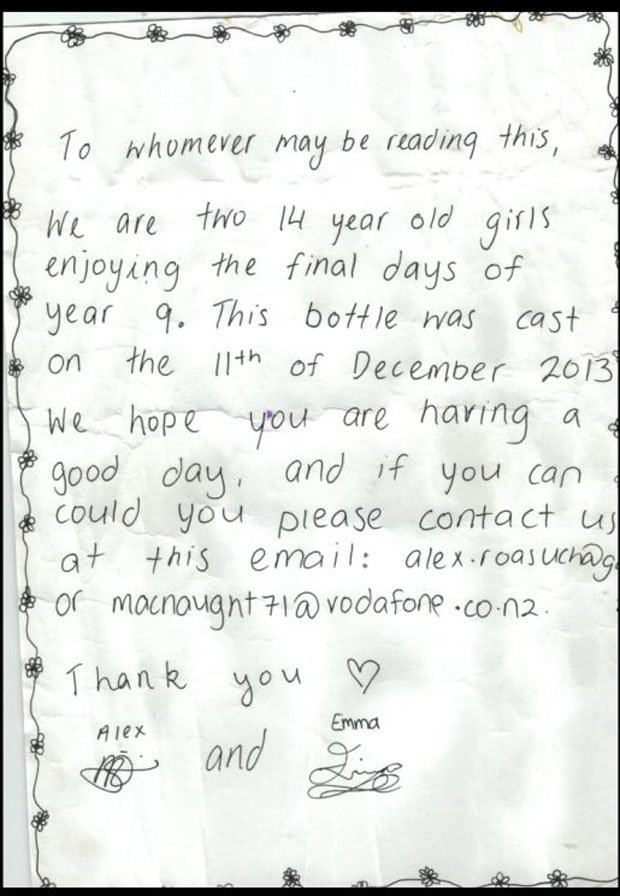 To whomever may be reading this,
We are two 14 year old girls
enjoying the final days of
year 9. This bottle was cast
on the 11th of December 2013
We hope you are having a
good day, and if you can
could you please contact us
at this email: alex.roasuch@g
or macnaught71@vodafone.co.nz.
Thank you ♡
Alex and Emma